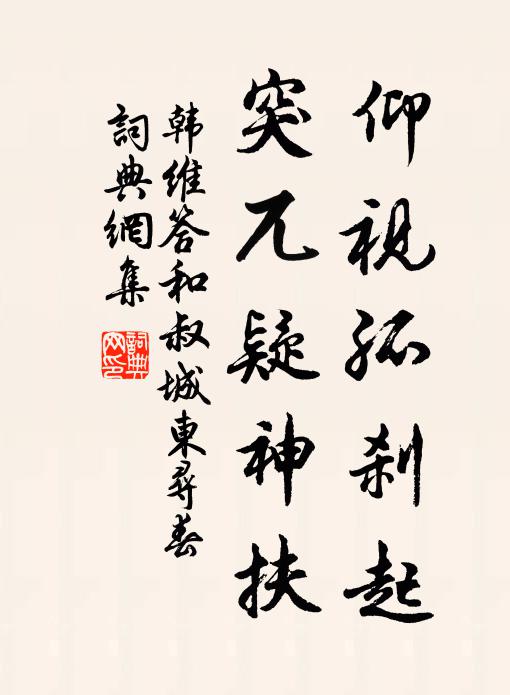 仰視孤刹起
突兀疑神扶
韩維答和叔城東尋春
詞典網集
詞典網印